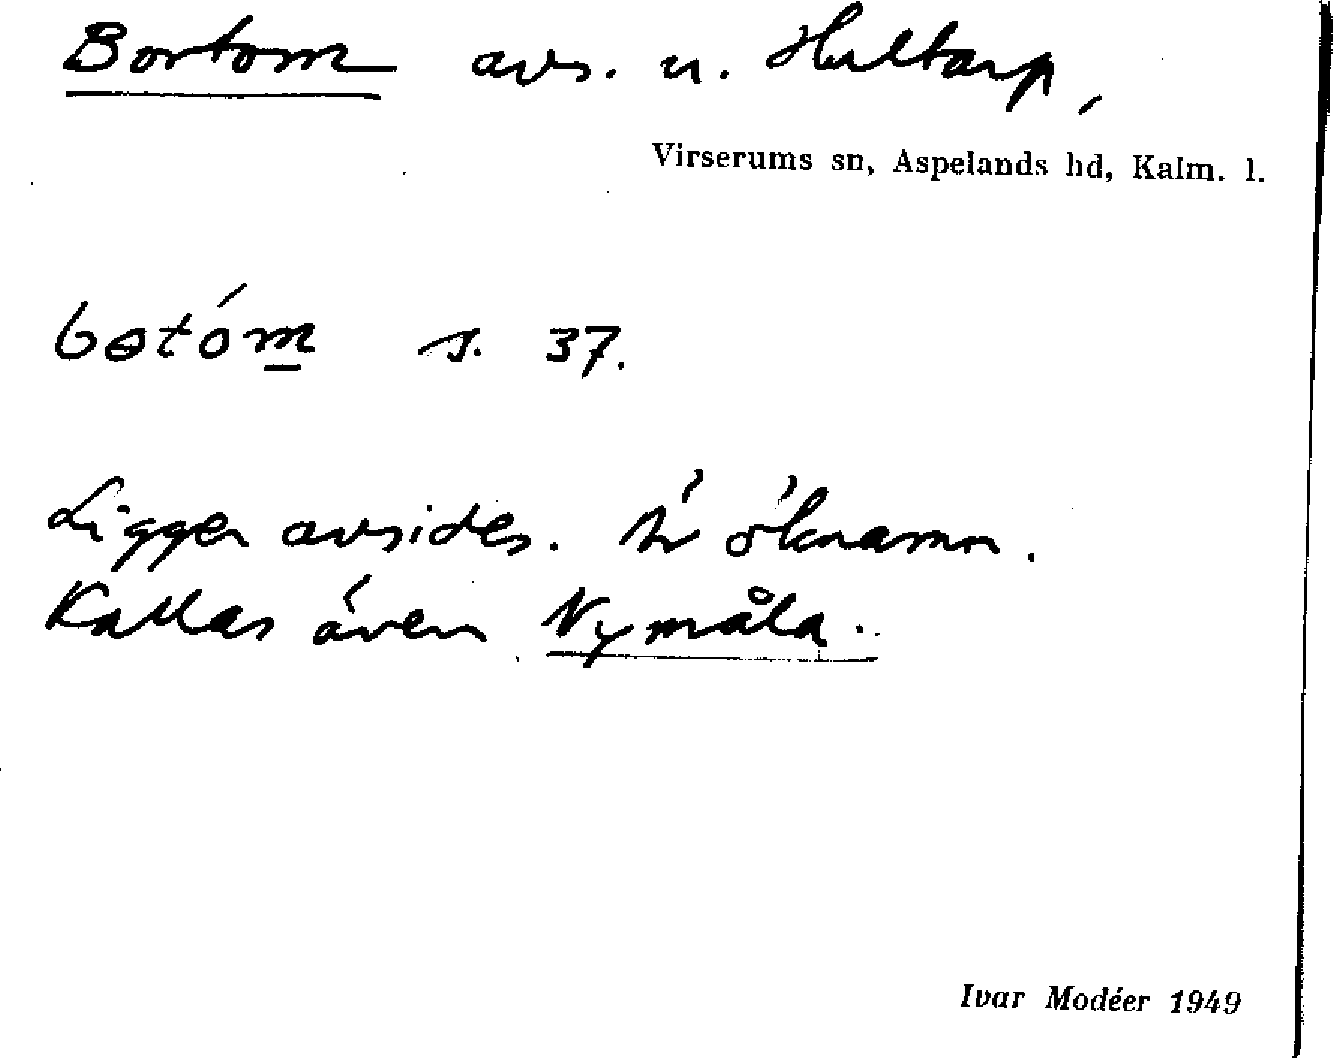 Bortom avs. u. Hultarp,
Virserums sn, Aspelands hd, Kalm. l.
bɵtóm s. 37.
Ligger avsides. Är öknamn.
Kallas även Nymåla.
Ivar Modéer 1949